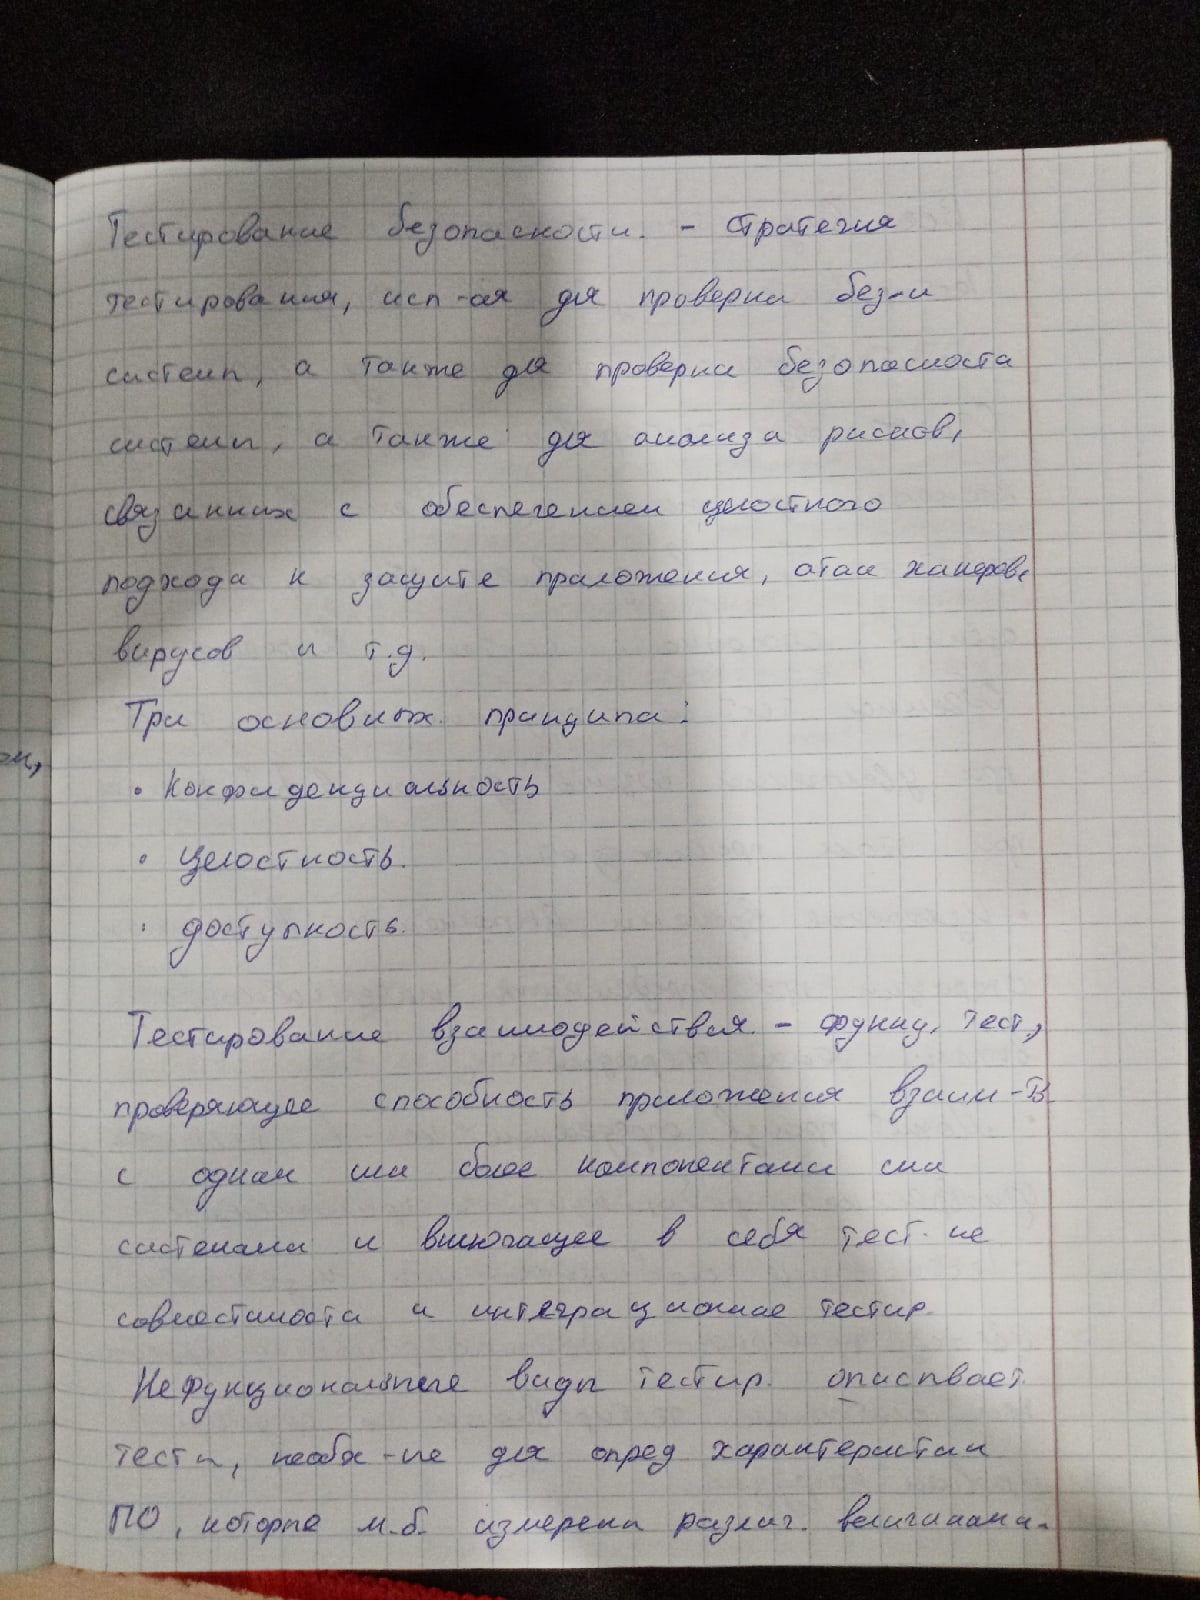 Тестирование безопасности. - стратегия
тестирования, исп-ая для проверки без-и
системы, а также для проверки безопасности
системы, а также для анализа рисков,
связанных с обеспечением целостного
подхода к защите приложения, атак хакеров,
вирусов и т.д.
Три основных принципа:
• Конфиденциальность
• целостность.
• доступность.
Тестирование взаимодействия - функц. тест,
проверяющее способность приложения взаим-ть
с одним или более компонентами или
системами и включающее в себя тест-ие
совместимости и интеграционное тестир.
Нефункциональные виды тестир. описывает
тесты, необх-ые для опред характеристик
ПО, которые м.б. измерены различ. величинами.
ом,